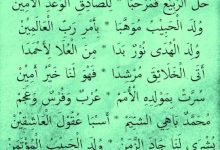 حل الربيع فمرحبا * للصادق الوعد الأمين
ولد الحبيب موهبا * بأمر رب العالمين
ولد الهدى نور بدا * من العلا لأحمدا
أتى الخلائق مرشدا * فهو لنا خير أمين
سرت بمولده الأمم * عرب وفرس وعجم
محمد باهي الشيم * أسبا عقول العاشقين
بشرى لنا جاد الزمن * ولد الحبيب المؤتمن